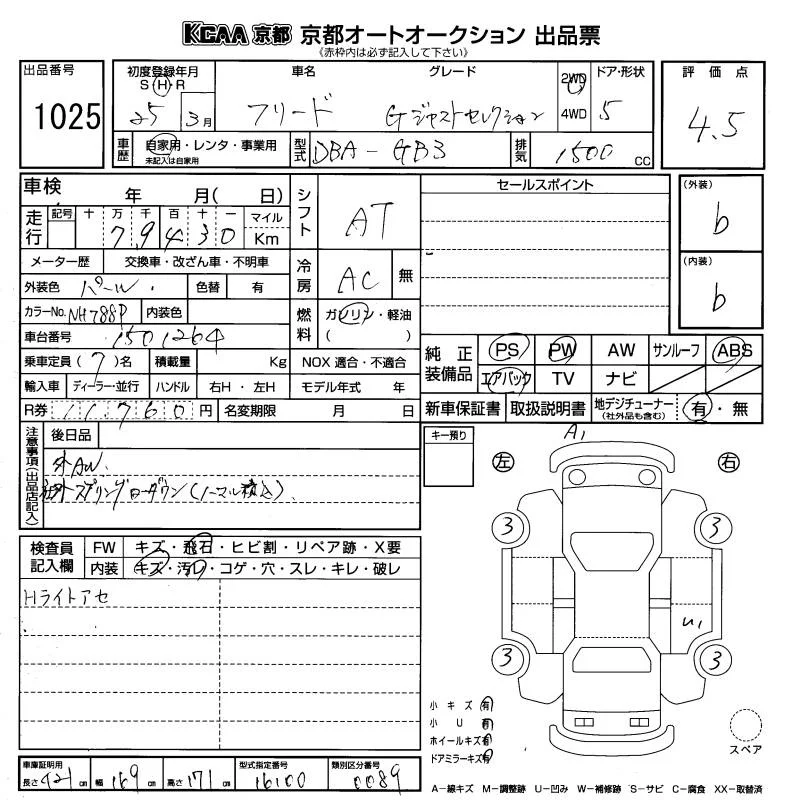 KCAA 京都 京都オートオークション 出品票
《赤枠内は必ず記入して下さい》
出品番号 1025
初度登録年月 S H R 25 3月
車名 フリード
グレード Gジャストセレクション
2WD 4WD
ドア・形状 5
評価点 4.5
車歴 自家用・レンタ・事業用 未記入は自家用
型式 DBA-GB3
排気 1500 CC
車検 年 月( 日)
走行 記号 十 万 千 百 十 一 マイル
7 9 4 3 0 Km
メーター歴 交換車・改ざん車・不明車
外装色 パール 色替 有
カラーNo. NH788P 内装色
車台番号 1501264
乗車定員 (7)名 積載量 Kg
輸入車 ディーラー・並行 ハンドル 右H・左H
R券 11760円 名変期限 月 日
シフト AT
冷房 AC 無
燃料 ガソリン・軽油 ( )
NOX 適合・不適合
モデル年式 年
セールスポイント
(外装) b
(内装) b
純正装備品 PS PW AW サンルーフ ABS
エアバック TV ナビ
新車保証書 取扱説明書 地デジチューナー (社外品も含む) 有・無
注意事項(出品店記入) 後日品
外AW
社外スプリングローダウン(ノーマル積込)
検査員記入欄 FW キズ・飛石・ヒビ割・リペア跡・X要
内装 キズ・汚れ・コゲ・穴・スレ・キレ・破レ
Hライトアセ
キー預り
A1
左 右
3 3
U1
3 3
小キズ 有
小U 有
ホイールキズ 有
ドアミラーキズ 有
スペア
車庫証明用 長さ 421cm 幅 169cm 高さ 171cm
型式指定番号 16100
類別区分番号 0089
A-線キズ M-調整跡 U-凹み W-補修跡 S-サビ C-腐食 XX-取替済